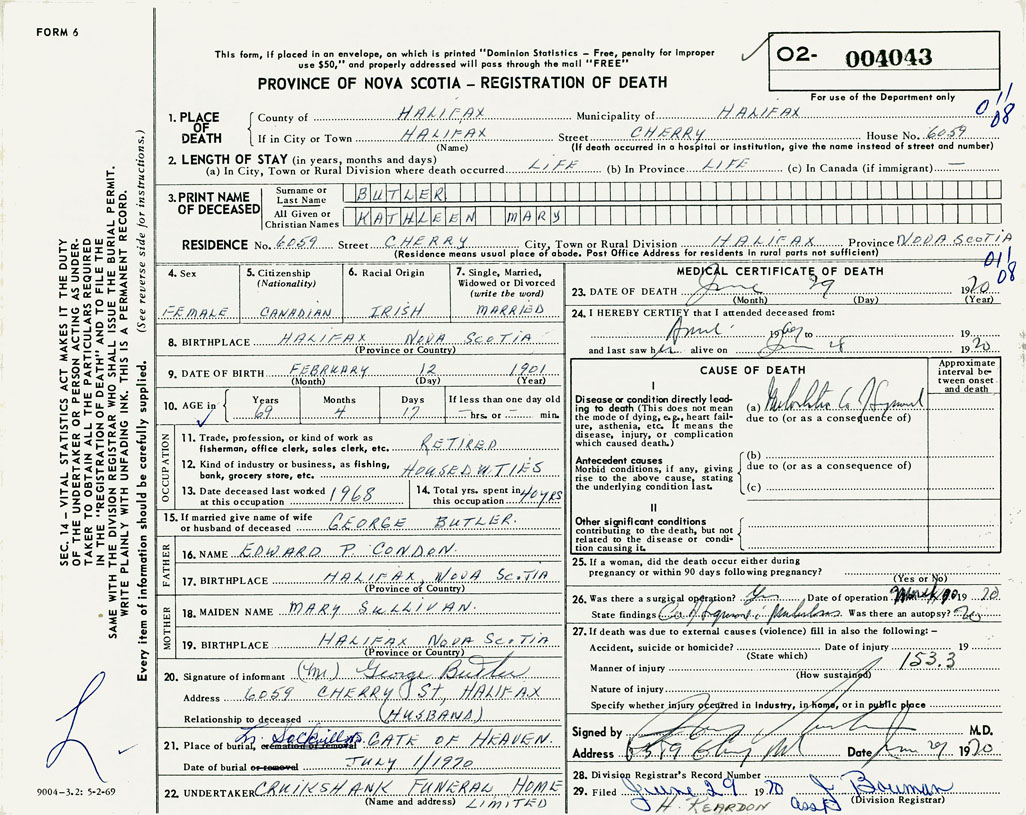 FORM 6
This form, if placed in an envelope, on which is printed "Dominion Statistics – Free, penalty for improper
use $50," and properly addressed will pass through the mail "FREE"
PROVINCE OF NOVA SCOTIA – REGISTRATION OF DEATH
O2- 004043
For use of the Department only
011
08
1. PLACE OF DEATH
County of HALIFAX Municipality of HALIFAX
If in City or Town HALIFAX Street CHERRY House No. 6059
(Name) (If death occurred in a hospital or institution, give the name instead of street and number)
2. LENGTH OF STAY (in years, months and days)
(a) In City, Town or Rural Division where death occurred LIFE (b) In Province LIFE (c) In Canada (if immigrant) —
3. PRINT NAME OF DECEASED
Surname or Last Name BUTLER
All Given or Christian Names KATHLEEN MARY
RESIDENCE No. 6059 Street CHERRY City, Town or Rural Division HALIFAX Province NOVA SCOTIA
(Residence means usual place of abode. Post Office Address for residents in rural parts not sufficient)
011
08
4. Sex FEMALE
5. Citizenship (Nationality) CANADIAN
6. Racial Origin IRISH
7. Single, Married, Widowed or Divorced (write the word) MARRIED
8. BIRTHPLACE HALIFAX NOVA SCOTIA
(Province or Country)
9. DATE OF BIRTH FEBRUARY 12 1901
(Month) (Day) (Year)
10. AGE in Years 69 Months 4 Days 17 If less than one day old — hrs. or — min.
OCCUPATION
11. Trade, profession, or kind of work as fisherman, office clerk, sales clerk, etc. RETIRED
12. Kind of industry or business, as fishing, bank, grocery store, etc. HOUSEDUTIES
13. Date deceased last worked at this occupation 1968
14. Total yrs. spent in this occupation 40 YRS
15. If married give name of wife or husband of deceased GEORGE BUTLER.
FATHER
16. NAME EDWARD P. CONDON.
17. BIRTHPLACE HALIFAX, NOVA SCOTIA
(Province or Country)
MOTHER
18. MAIDEN NAME MARY SULLIVAN.
19. BIRTHPLACE HALIFAX NOVA SCOTIA
(Province or Country)
20. Signature of informant (Mr) George Butler
Address 6059 CHERRY ST, HALIFAX
Relationship to deceased (HUSBAND)
21. Place of burial, cremation or removal Sackville GATE OF HEAVEN.
Date of burial or removal JULY 1/1970
22. UNDERTAKER CRUIKSHANK FUNERAL HOME
(Name and address) LIMITED
MEDICAL CERTIFICATE OF DEATH
23. DATE OF DEATH June 29 1970
(Month) (Day) (Year)
24. I HEREBY CERTIFY that I attended deceased from:
April 1969 to 19
and last saw her alive on June 4 1970
CAUSE OF DEATH
Approximate interval between onset and death
I
Disease or condition directly leading to death (This does not
mean the mode of dying, e.g., heart failure, asthenia, etc. It means the
disease, injury, or complication
which caused death.)
(a)
due to (or as a consequence of)
Antecedent causes
Morbid conditions, if any, giving
rise to the above cause, stating
the underlying condition last.
(b)
due to (or as a consequence of)
(c)
II
Other significant conditions
contributing to the death, but not
related to the disease or condition
causing it.
25. If a woman, did the death occur either during
pregnancy or within 90 days following pregnancy?
(Yes or No)
26. Was there a surgical operation? Yes Date of operation 1970
State findings Was there an autopsy? No
27. If death was due to external causes (violence) fill in also the following: –
Accident, suicide or homicide? Date of injury 19
(State which) 153.3
Manner of injury
(How sustained)
Nature of injury
Specify whether injury occurred in industry, in home, or in public place
Signed by M.D.
Address Date June 29 1970
28. Division Registrar's Record Number
29. Filed June 29 1970 J Bowman
H. REARDON (Division Registrar)
SEC. 14 – VITAL STATISTICS ACT MAKES IT THE DUTY
OF THE UNDERTAKER OR PERSON ACTING AS UNDERTAKER
TO OBTAIN ALL THE PARTICULARS REQUIRED
IN THE "REGISTRATION OF DEATH" AND TO FILE THE
SAME WITH THE DIVISION REGISTRAR WHO SHALL ISSUE THE BURIAL PERMIT.
WRITE PLAINLY WITH UNFADING INK. THIS IS A PERMANENT RECORD.
Every item of information should be carefully supplied. (See reverse side for instructions.)
L.
9004-3.2: 5-2-69